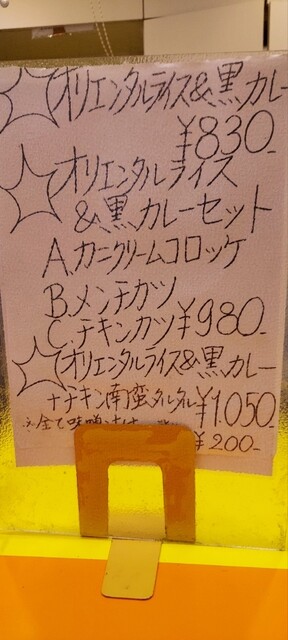 オリエンタルライス&黒カレー
¥830-
オリエンタルライス
&黒カレーセット
A.カニクリームコロッケ
B.メンチカツ
C.チキンカツ ¥980-
オリエンタルライス&黒カレー
+チキン南蛮タルタル ¥1.050-
※全て味噌汁 ¥200-